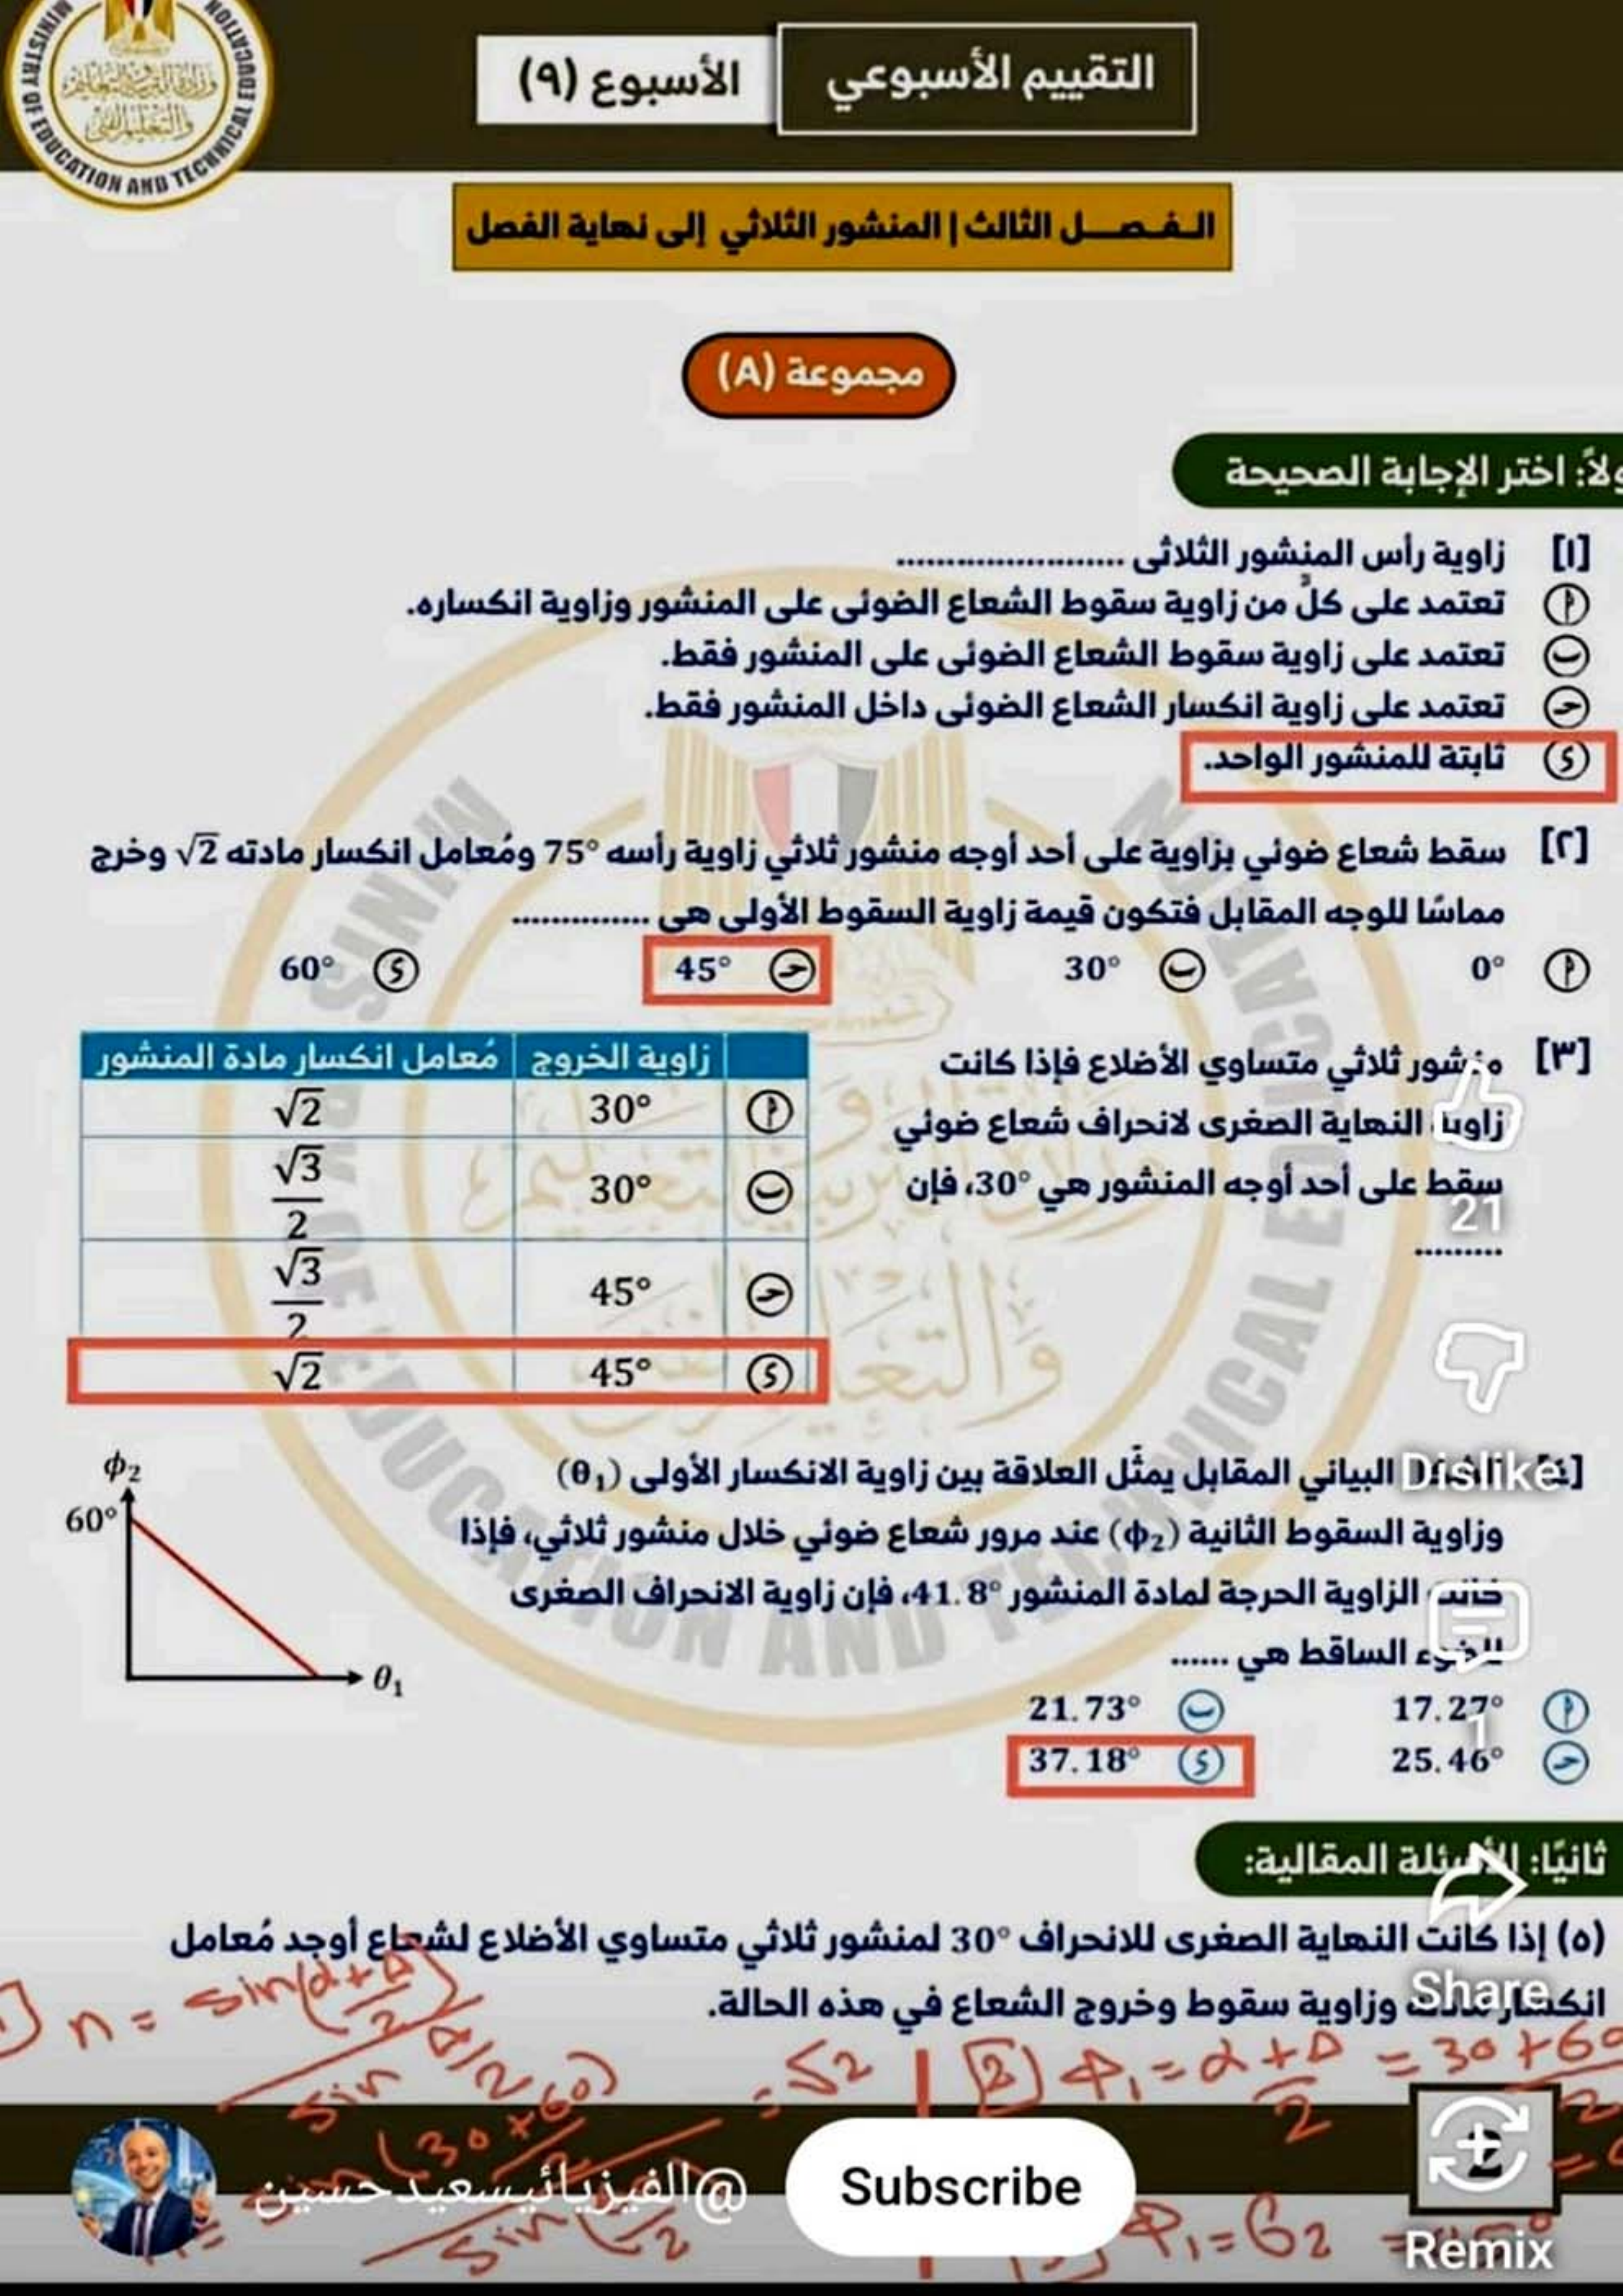 MINISTRY OF EDUCATION AND TECHNICAL EDUCATION
التقييم الأسبوعي
الأسبوع (٩)
الـفـصــل الثالث | المنشور الثلاثي إلى نهاية الفصل
مجموعة (A)
ولاً: اختر الإجابة الصحيحة
[١] زاوية رأس المنشور الثلاثى ........................
أ تعتمد على كلٍّ من زاوية سقوط الشعاع الضوئى على المنشور وزاوية انكساره.
ب تعتمد على زاوية سقوط الشعاع الضوئى على المنشور فقط.
حـ تعتمد على زاوية انكسار الشعاع الضوئى داخل المنشور فقط.
ى ثابتة للمنشور الواحد.
[٢] سقط شعاع ضوئي بزاوية على أحد أوجه منشور ثلاثي زاوية رأسه 75° ومُعامل انكسار مادته √2 وخرج
مماسًا للوجه المقابل فتكون قيمة زاوية السقوط الأولى هي ..............
أ 0° ب 30° حـ 45° ى 60°
[٣] منشور ثلاثي متساوي الأضلاع فإذا كانت
زاوية النهاية الصغرى لانحراف شعاع ضوئي
سقط على أحد أوجه المنشور هي 30°، فإن
.........
زاوية الخروج مُعامل انكسار مادة المنشور
أ 30° √2
ب 30° √3/2
حـ 45° √3/2
ى 45° √2
21
Dislike
البياني المقابل يمثّل العلاقة بين زاوية الانكسار الأولى (θ₁)
وزاوية السقوط الثانية (ϕ₂) عند مرور شعاع ضوئي خلال منشور ثلاثي، فإذا
كانت الزاوية الحرجة لمادة المنشور 41.8°، فإن زاوية الانحراف الصغرى
للضوء الساقط هي ......
ϕ₂
60°
θ₁
أ 17.27° ب 21.73°
حـ 25.46° ى 37.18°
1
ثانيًا: الأسئلة المقالية:
(٥) إذا كانت النهاية الصغرى للانحراف 30° لمنشور ثلاثي متساوي الأضلاع لشعاع أوجد مُعامل
انكسار مادته وزاوية سقوط وخروج الشعاع في هذه الحالة.
Share
n = sin(α+A/2) / sin A/2
= √2 | [2] ϕ₁ = α+A/2 = 30+60/2
@الفيزيائيسعيدحسين
Subscribe
2
Remix